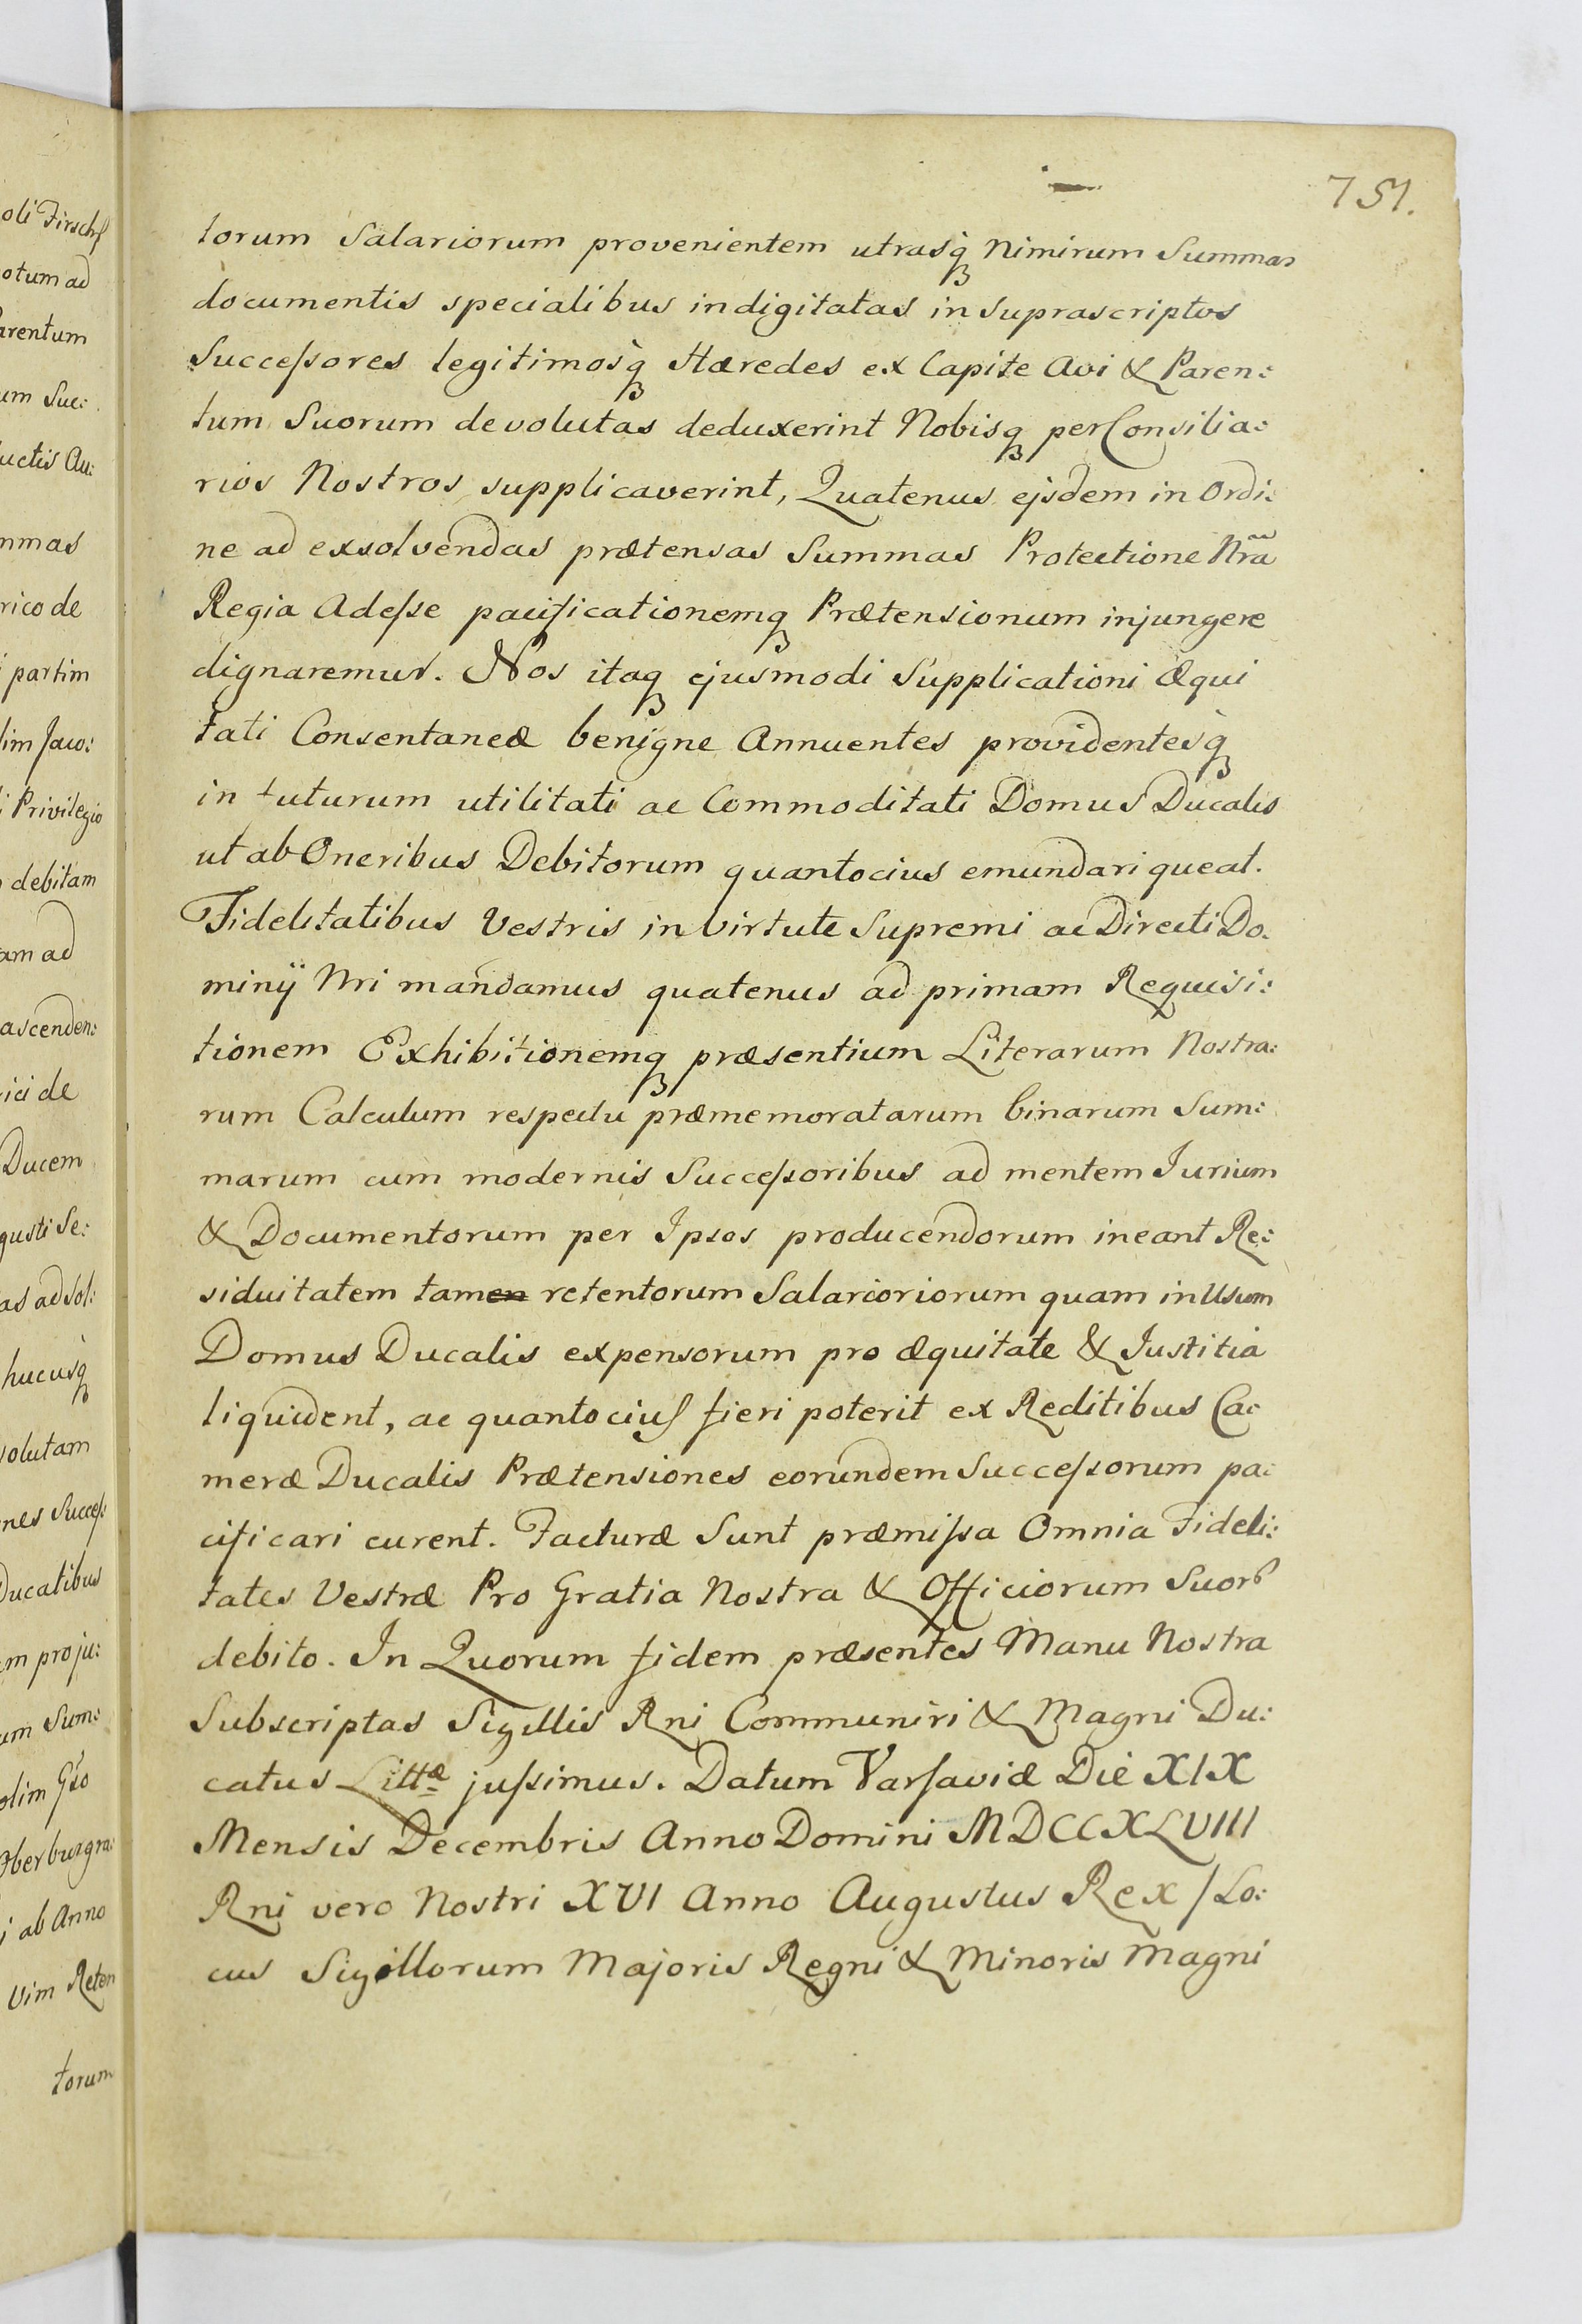 751.
torum Salariorum provenientem utrasq nimirum Summas
documentis specialibus indigitatas in suprascriptos
Successores legitimosq Hæredes ex Capite Avi & Paren:
tum Suorum devolutas deduxerint Nobisq per Consilia:
rios Nostros supplicaverint, Quatenus ejsdem in Ordi:
ne ad exsolvendas prætensas Summas Protectione Nrã
Regia Adesse pacificationemq Prætensionum injungere
dignaremur. Nos itaq ejusmodi Supplicationi Æqui
tati Consentaneæ benigne Annuentes providentesq
in futurum utilitati ac Commoditati Domus Ducalis
ut ab Oneribus Debitorum quantocius emundari queat.
Fidelitatibus Vestris in virtute Supremi ac Directi Do:
minij Nri mandamus quatenus ad primam Requisi:
tionem Exhibitionemq præsentium Literarum Nostra:
rum Calculum respectu præmemoratarum binarum Sum:
marum cum modernis Successoribus ad mentem Jurium
& Documentorum per Ipsos producendorum ineant Re:
siduitatem tamen retentorum Salarioriorum quam in Usum
Domus Ducalis expensorum pro æquitate & Justitia
liquident, ac quantocius fieri poterit ex Reditibus Ca:
meræ Ducalis Prætensiones eorundem Successorum pa:
cificari curent. Facturæ Sunt præmissa Omnia Fideli:
tates Vestræ Pro Gratia Nostra & Officiorum Suorb
debito. In Quorum fidem præsentes Manu Nostra
Subscriptas Sigillis Rni Communiri & Magni Du:
catus Littæ jussimus. Datum Varsaviæ Die XIX
Mensis Decembris Anno Domini MDCCXLVIII
Rni vero Nostri XVI Anno Augustus Rex /Lo:
cus Sigillorum Majoris Regni & Minoris Magni
oli Firschs
otum ad
arentum
um Suc:
uctis Au:
mmas
rico de
partim
lim Jaco:
i Privilegio
debitam
am ad
ascenden:
ici de
Ducem
gusti Se:
as ad sol:
hucusq
volutam
nes Success:
Ducatibus
em pro ju:
um Sum:
olim Gso
Oberburgra:
j ab Anno
Vim Reten
torum